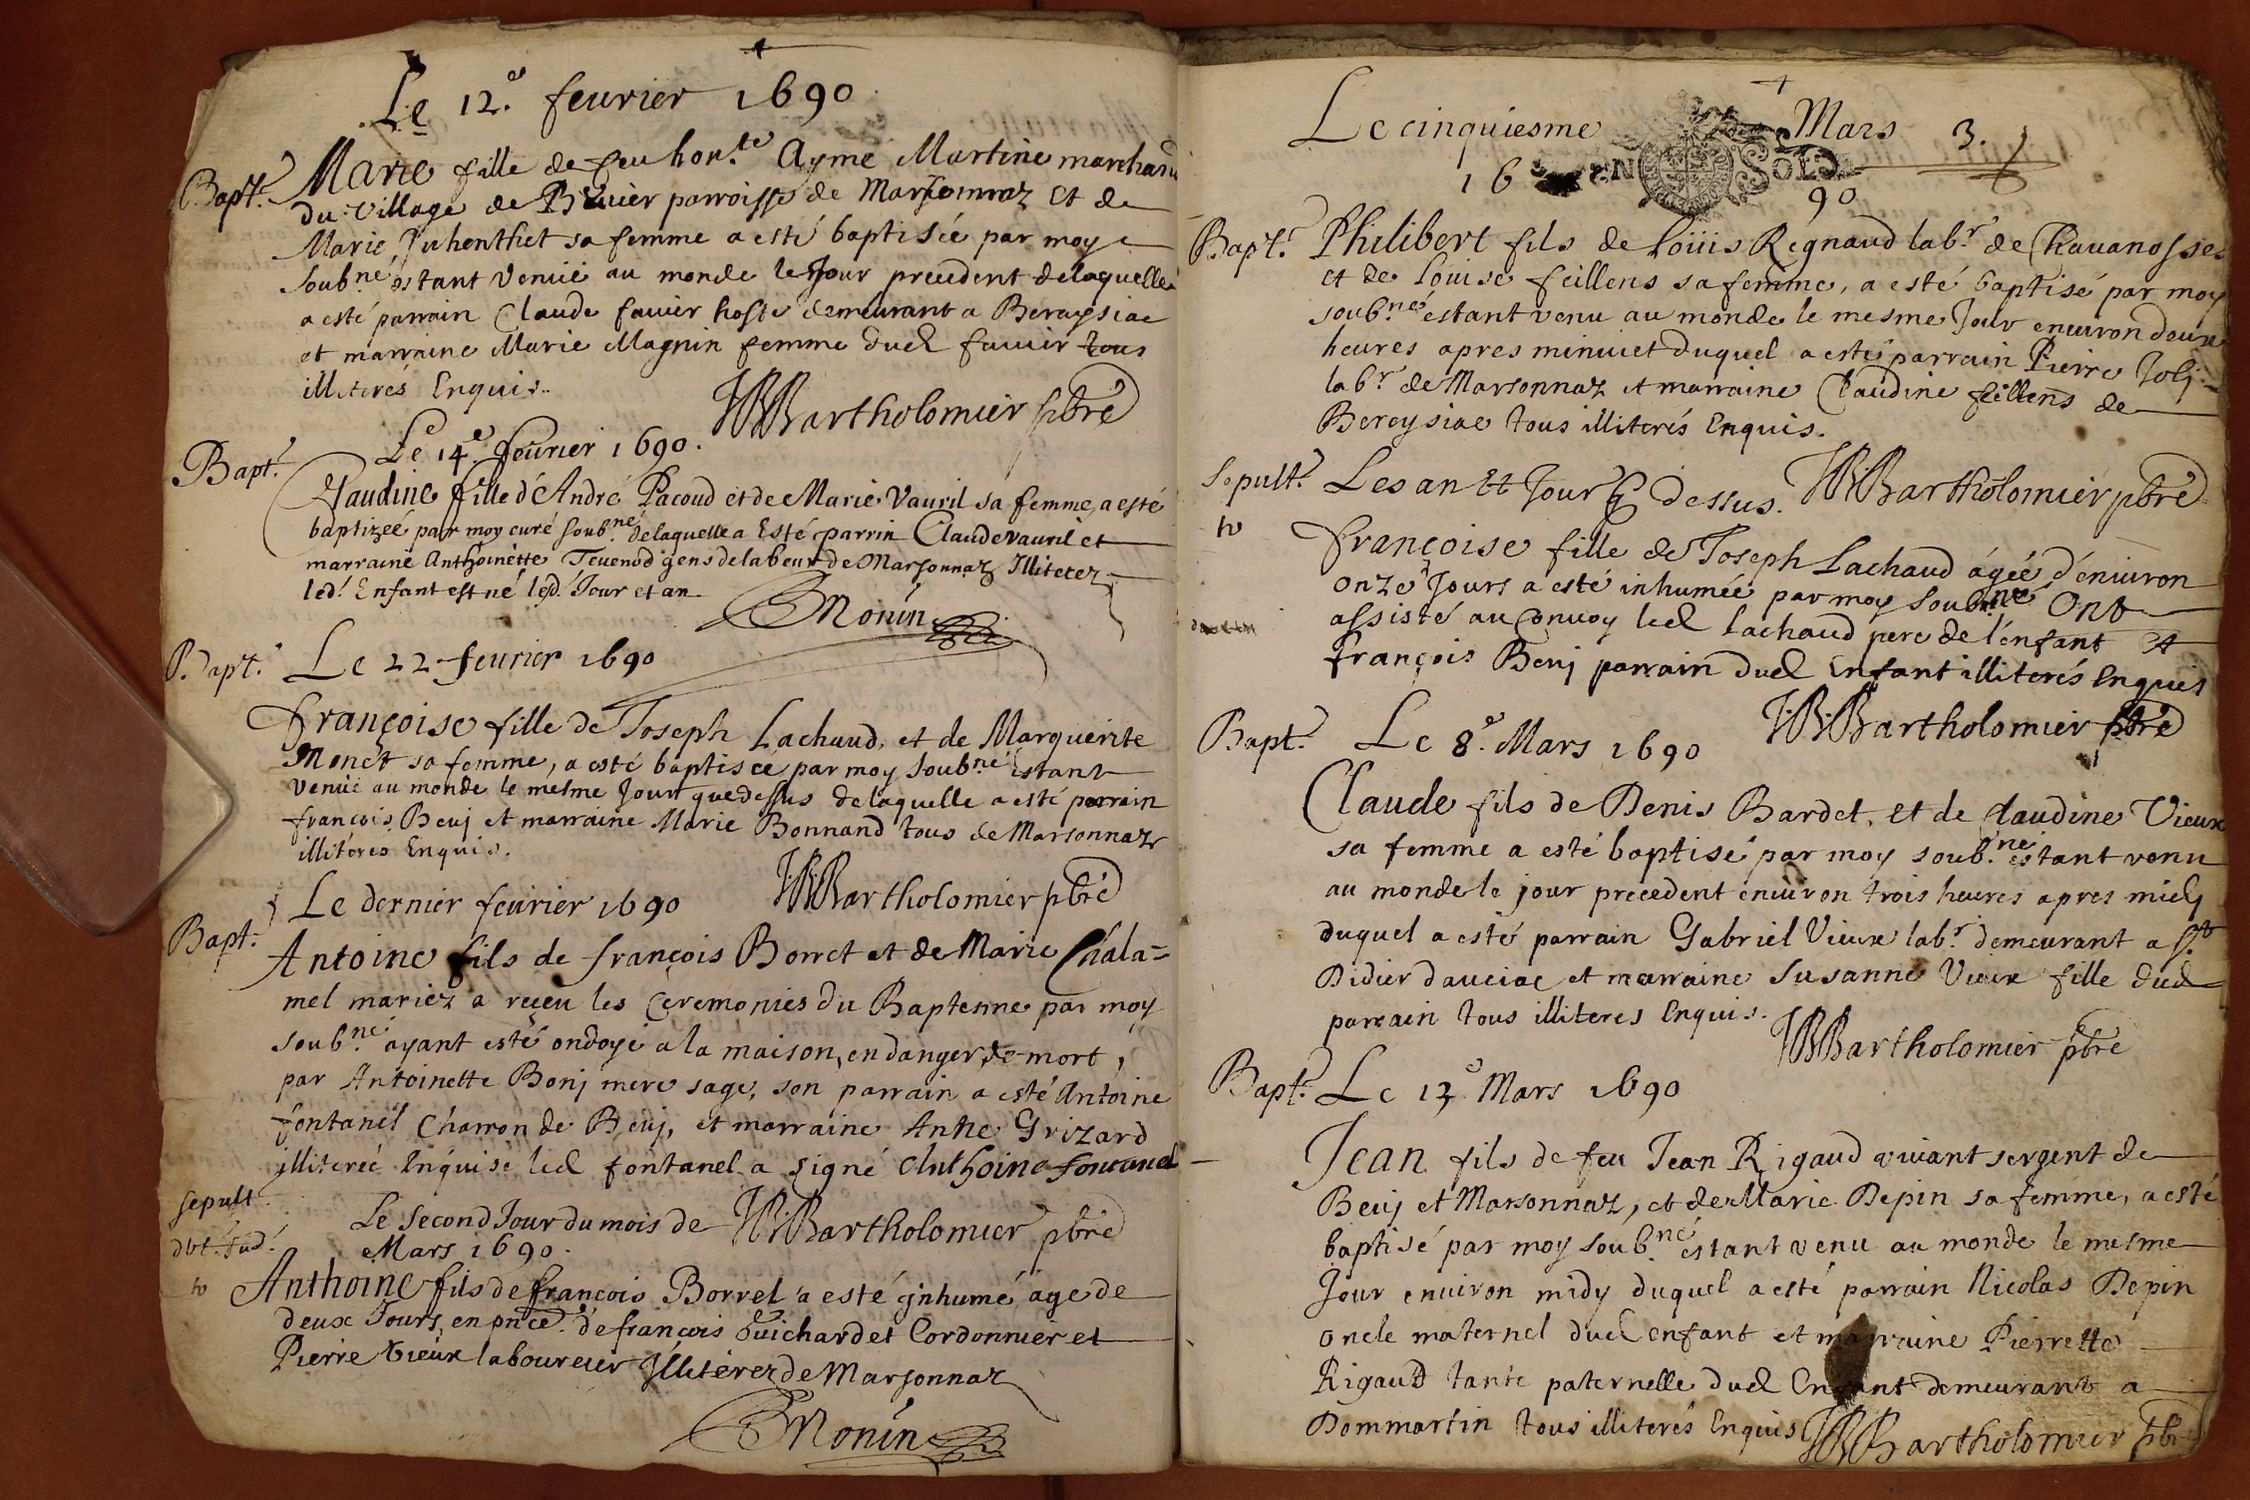 Le 12.e feurier 1690
Bapt. Marie fille de feu hon.te Aymé Martine marchand
du village de parroisse de Marsonnaz et de
Marie Juhenthet sa femme a esté baptisée par moy
soub.né estant venüe au monde le Jour precedent de laquelle
a esté parrain Claude fauier hoste demeurant a Bereysiac
et marraine Marie Magnin femme dud fauier tous
illiterés Enquis.
JBBartholomier pbre
Le 14.e feurier 1690.
Bapt. Claudine fille d'André Pacoud et de Marie Vauril sa femme, a esté
baptizeé par moy curé soub.né de laquelle a Esté parrin Claude vauril et
marraine Anthoinette Teuenod gens de labeur de Marsonnaz Illiterez
led. Enfant est né lesd. Jour et an
Monin
Bapt. Le 22 feurier 1690
françoise fille de Joseph Lachaud, et de Marguerite
Monet sa femme, a esté baptisée par moy soub.né Estant
venüe au monde le mesme Jour que dessus de laquelle a esté parrain
françois Beuj et marraine Marie Bonnand tous de Marsonnaz
illiteres Enquis.
JBBartholomier pbre
Le dernier feurier 1690
Bapt. Antoine fils de françois Borret et de Marie Chala=
mel mariez a reçeu les Ceremonies du Baptesme par moy
soub.né ayant esté ondoyé a la maison, en danger de mort,
par Antoinette Bonj mere sage, son parrain a esté Antoine
fontanel Charron de Beuj, et marraine Anne Grizard
illitereé Enquise led fontanel a signé Anthoine fontanel
JBBartholomier pbre
sepult.
dvt. sud.
to
Le second Jour du mois de
Mars 1690.
Anthoine fils de françois Borrel a esté jnhumé age de
deux Jours, en pnce. de françois Guichardet Cordonnier et
Pierre Vieux laboureur Illiterez de Marsonnaz
Monin
Le cinquiesme Mars 3.
16 SOLS
90
Bapt. Philibert fils de Loüis Regnaud lab.r de Chauanosses
et de Louise feillens sa femme, a esté baptisé par moy
soub.né estant venu au monde le mesme Jour enuiron deux
heures apres minuiet duquel a esté parrain Pierre Joly
lab.r de Marsonnaz et marraine Claudine feillens de
Bereysiac tous illiterés Enquis.
Sepult. Les an et Jour dessus. JBBartholomier pbre
to
françoise fille de Joseph Lachaud ágée d'enuiron
onze Jours a esté inhumée par moy soub.né Ont
assisté au Conuoy led Lachaud pere de l'enfant et
françois Beuj parrain dud Enfant illiterés Enquis
JBBartholomier pbre
Bapt. Le 8.e Mars 1690
Claude fils de Denis Bardet, et de Claudine Vieux
sa femme a esté baptisé par moy soub.né estant venu
au monde le jour precedent enuiron trois heures apres midy
duquel a esté parrain Gabriel Vieux lab.r demeurant a St
Didier dauciac et marraine Susanne Vieux fille dud
parrain tous illiteres Enquis.
JBBartholomier pbre
Bapt. Le 13e Mars 1690
Jean fils de feu Jean Rigaud viuant sergent de
Beuj et Marsonnaz, et de Marie Depin sa femme, a esté
baptisé par moy soub.né estant venu au monde le mesme
Jour enuiron midy duquel a esté parrain Nicolas Depin
oncle maternel dud enfant et marraine Pierrette
Rigaud tante paternelle dud Enfant demeurant a
Dommartin tous illiterés Enquis JBBartholomier pbre